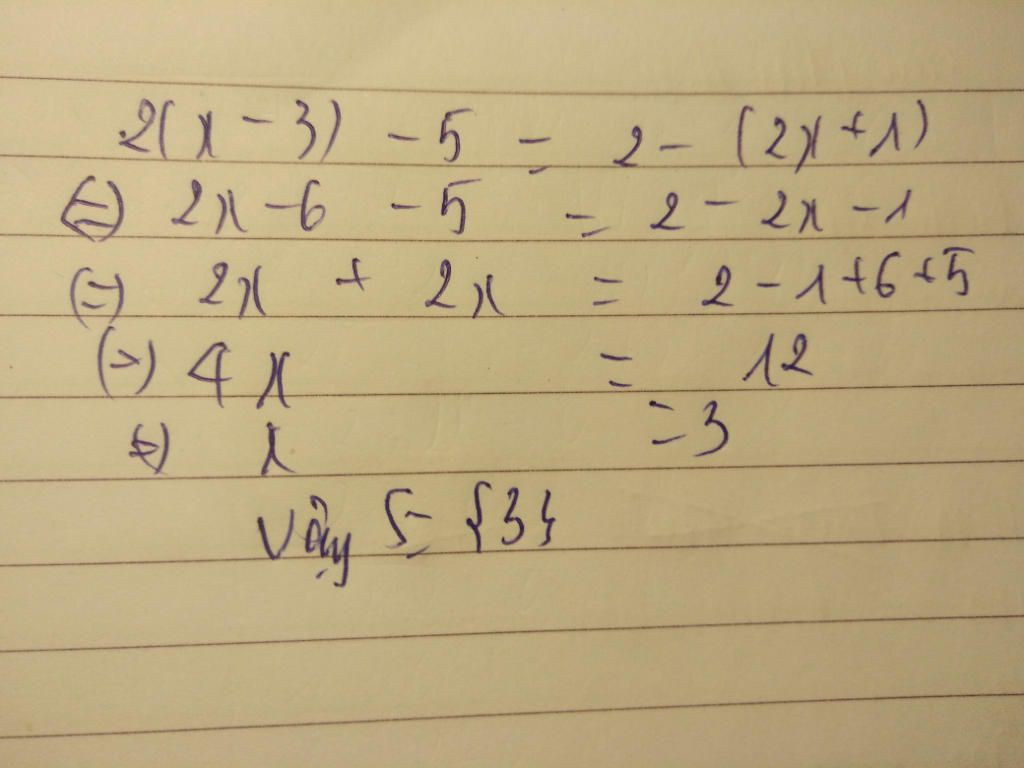 2(x - 3) - 5 = 2 - (2x + 1)
(=) 2x - 6 - 5 = 2 - 2x - 1
(=) 2x + 2x = 2 - 1 + 6 + 5
(=) 4x = 12
(=) x = 3
Vậy S = {3}